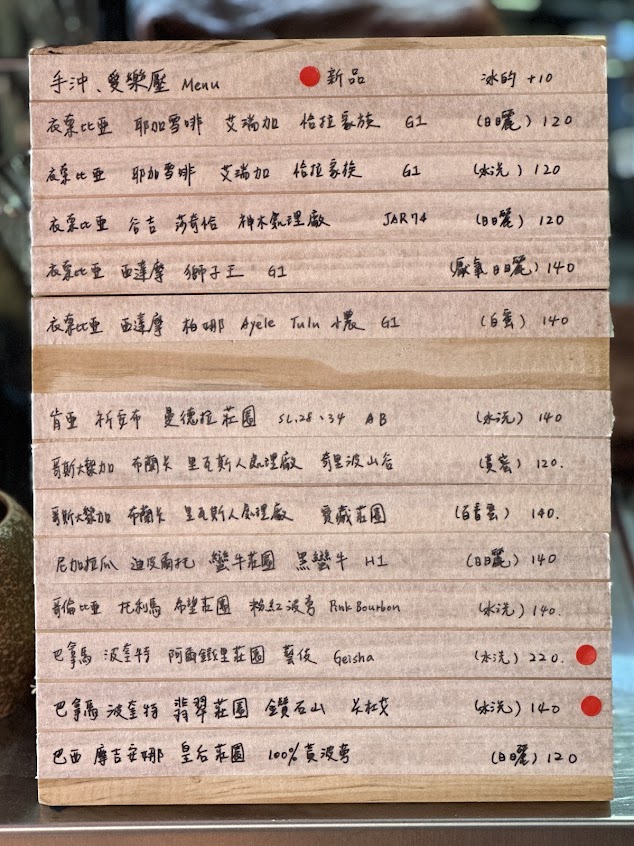 手沖、愛樂壓 Menu 新品 冰的 +10
衣索比亞 耶加雪啡 艾瑞加 恰拉家族 G1 (日曬) 120
衣索比亞 耶加雪啡 艾瑞加 恰拉家族 G1 (水洗) 120
衣索比亞 谷吉 莎奇佮 神木處理廠 JAR74 (日曬) 120
衣索比亞 西達摩 獅子王 G1 (厭氧日曬) 140
衣索比亞 西達摩 柏娜 Ayele Tulu 小農 G1 (白蜜) 140
肯亞 祈安布 曼德拉莊園 SL28、34 AB (水洗) 140
哥斯大黎加 布蘭卡 里瓦斯人處理廠 奇里波山谷 (黃蜜) 120.
哥斯大黎加 布蘭卡 里瓦斯人處理廠 寶藏莊園 (百香蜜) 140.
尼加拉瓜 迪皮爾托 蠻牛莊園 黑蠻牛 H1 (日曬) 140
哥倫比亞 托利馬 希望莊園 粉紅波旁 Pink Bourbon (水洗) 140.
巴拿馬 波奎特 阿爾鐵里莊園 藝伎 Geisha (水洗) 220.
巴拿馬 波奎特 翡翠莊園 鑽石山 卡杜艾 (水洗) 140
巴西 摩吉安娜 皇后莊園 100% 黃波旁 (日曬) 120